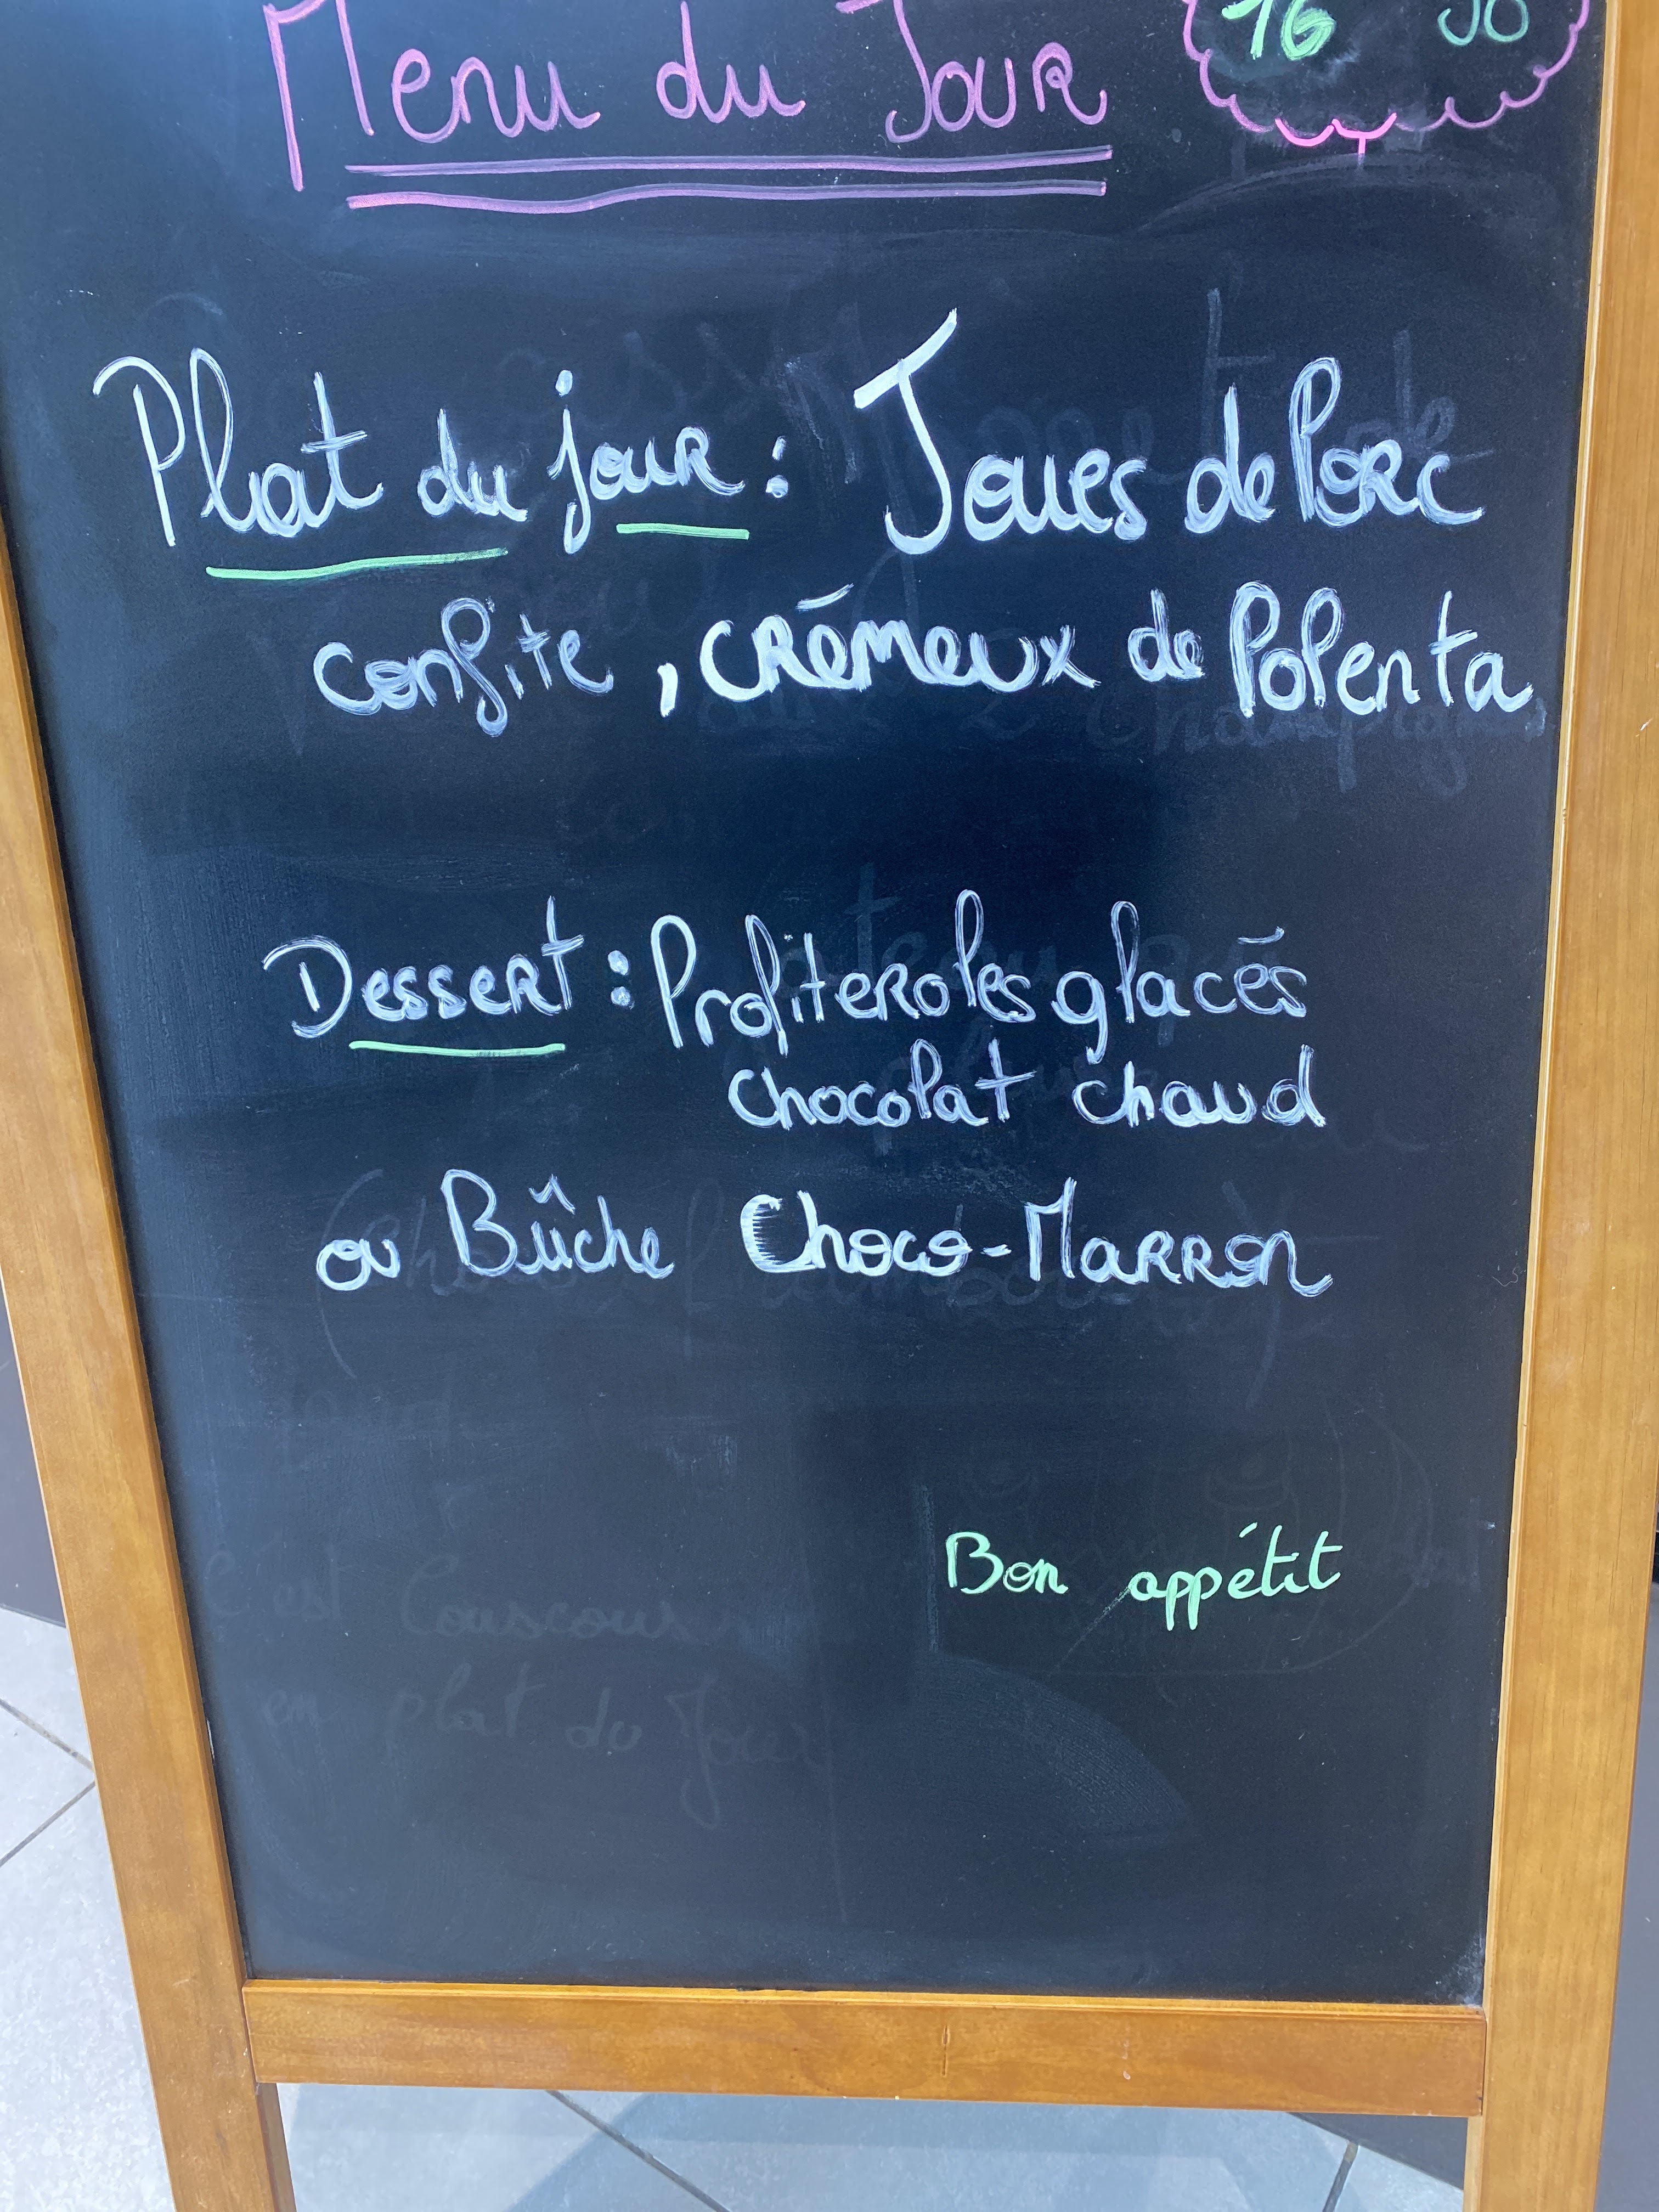 Menu du Jour
16 50
Plat du jour : Joues de Porc
confite, crémeux de Polenta
Dessert : Profiteroles glacés
chocolat chaud
ou Bûche Choco-Marron
Bon appétit
C'est Couscous
en plat du Jour